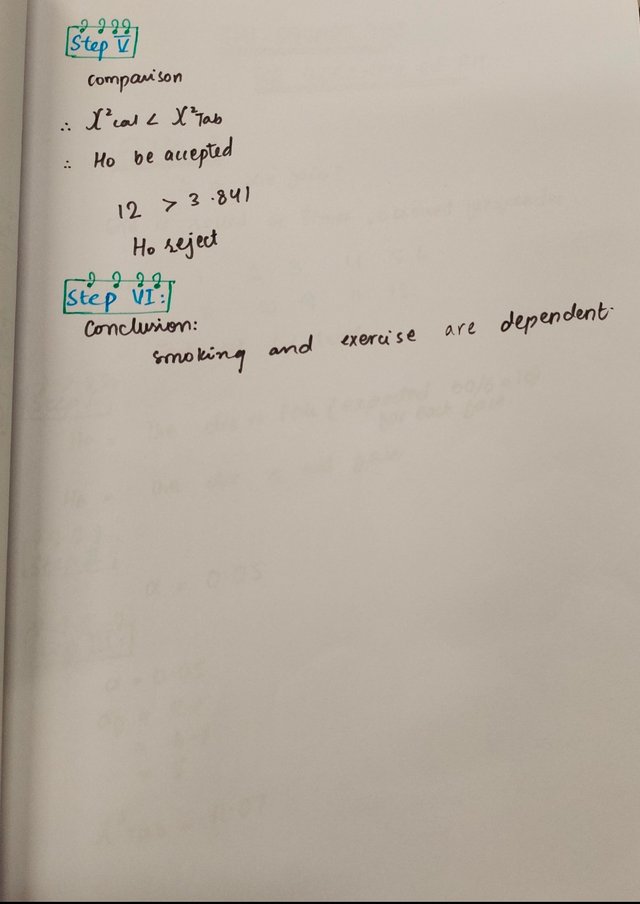 Step V
comparison
∴ X²cal < X²Tab
∴ Ho be accepted
12 > 3.841
Ho reject
Step VI:
conclusion:
smoking and exercise are dependent.